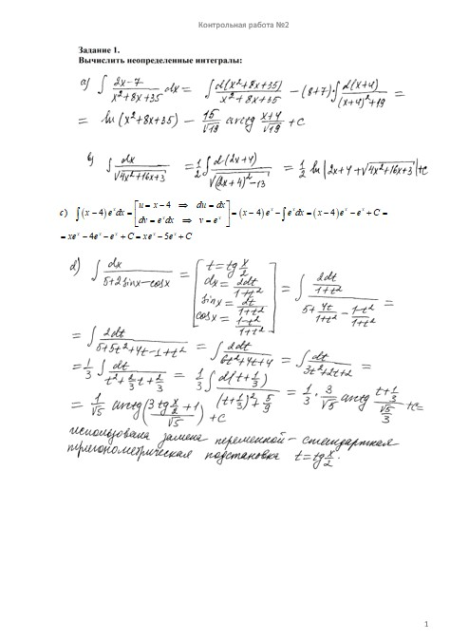 Контрольная работа №2
Задание 1.
Вычислить неопределенные интегралы:
a) ∫ (2x-7)/(x²+8x+35) dx = ∫ d(x²+8x+35)/(x²+8x+35) - (8+7)·∫ d(x+4)/((x+4)²+19) =
= ln(x²+8x+35) - 15/√19 arctg (x+4)/√19 + C
b) ∫ dx/√(4x²+16x+3) = 1/2 ∫ d(2x+4)/√((2x+4)²-13) = 1/2 ln|2x+4+√(4x²+16x+3)|+C
c) ∫(x-4)eˣdx = [u = x-4 ⇒ du = dx; dv = eˣdx ⇒ v = eˣ] = (x-4)eˣ - ∫eˣdx = (x-4)eˣ - eˣ + C =
= xeˣ - 4eˣ - eˣ + C = xeˣ - 5eˣ + C
d) ∫ dx/(5+2sinx-cosx) = [t = tg x/2; dx = 2dt/(1+t²); sinx = 2t/(1+t²); cosx = (1-t²)/(1+t²)] = ∫ (2dt/(1+t²))/(5+4t/(1+t²)-(1-t²)/(1+t²)) =
= ∫ 2dt/(5+5t²+4t-1+t²) = ∫ 2dt/(6t²+4t+4) = ∫ dt/(3t²+2t+2) =
= 1/3 ∫ dt/(t²+2/3t+2/3) = 1/3 ∫ d(t+1/3)/((t+1/3)²+5/9) = 1/3 · 3/√5 arctg (t+1/3)/(√5/3) + C =
= 1/√5 arctg((3tg x/2+1)/√5) + C
использована замена переменной - стандартная
тригонометрическая подстановка t = tg x/2.
1